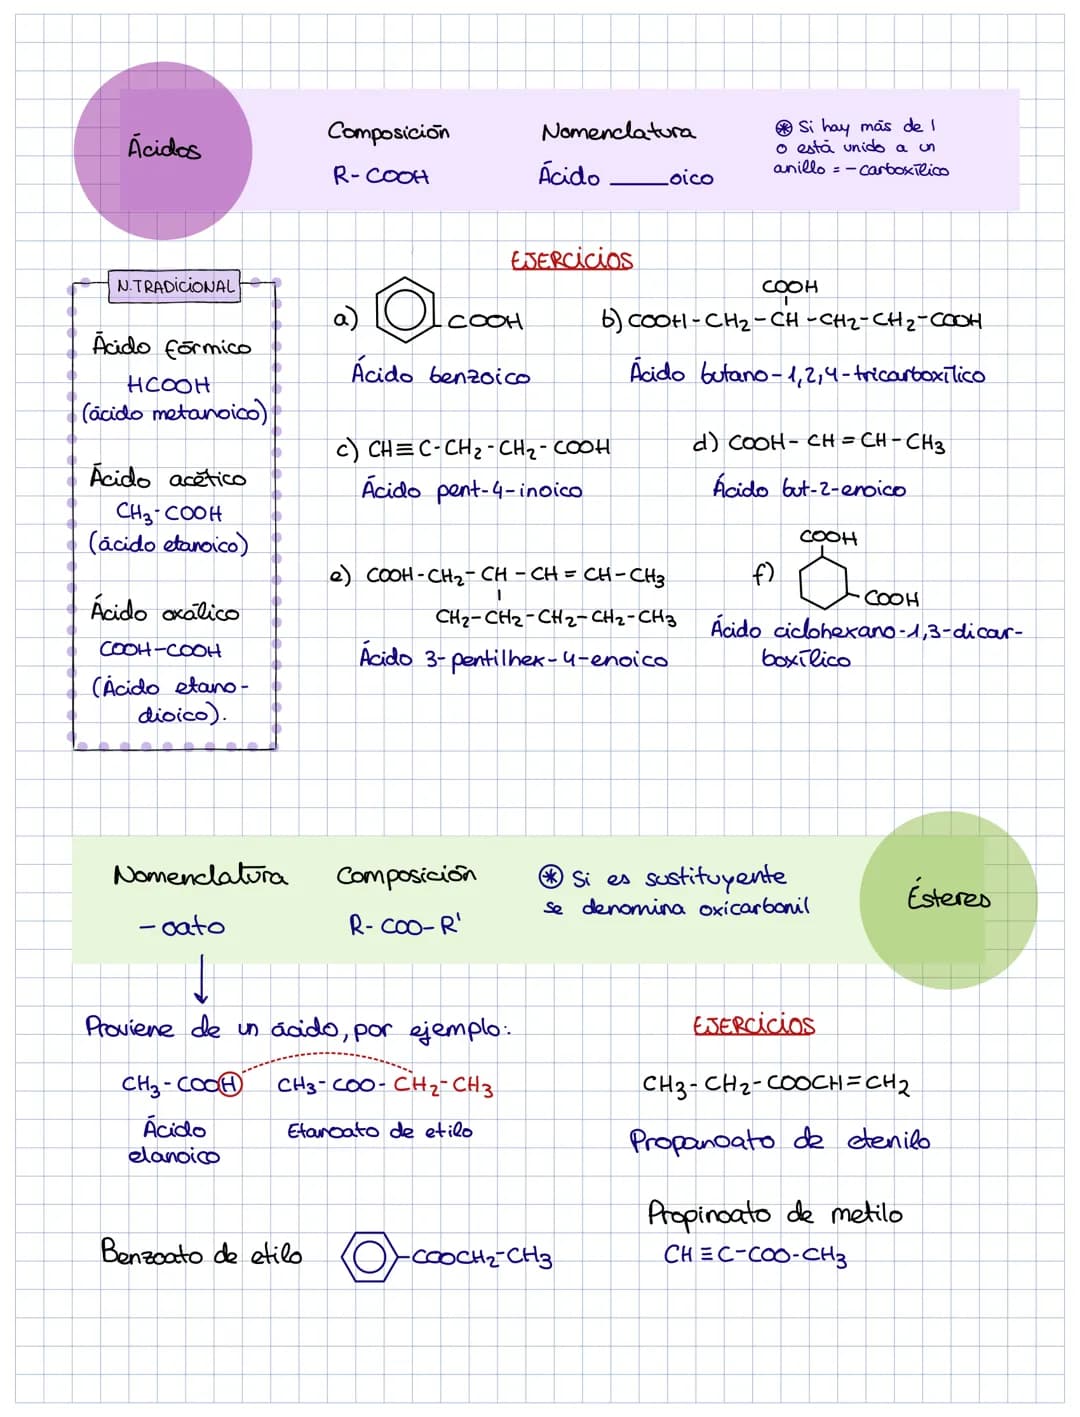 Ácidos
Composición
R-COOH
Nomenclatura
Ácido ____oico
⊛ Si hay más de 1
o está unido a un
anillo = -carboxílico
N.TRADICIONAL
Ácido fórmico
HCOOH
(ácido metanoico)
Ácido acético
CH3-COOH
(ácido etanoico)
Ácido oxálico
COOH-COOH
(Ácido etano-
dioico).
EJERCICIOS
a) COOH
Ácido benzoico
COOH
b) COOH-CH2-CH-CH2-CH2-COOH
Ácido butano-1,2,4-tricarboxílico
c) CH≡C-CH2-CH2-COOH
Ácido pent-4-inoico
d) COOH-CH=CH-CH3
Ácido but-2-enoico
e) COOH-CH2-CH-CH=CH-CH3
CH2-CH2-CH2-CH2-CH3
Ácido 3-pentilhex-4-enoico
f) COOH
COOH
Ácido ciclohexano-1,3-dicar-
boxílico
Nomenclatura
-oato
Composición
R-COO-R'
⊛ Si es sustituyente
se denomina oxicarbonil
Ésteres
Proviene de un ácido, por ejemplo:
CH3-COOH
Ácido
etanoico
CH3-COO-CH2-CH3
Etanoato de etilo
Benzoato de etilo
-COOCH2-CH3
EJERCICIOS
CH3-CH2-COOCH=CH2
Propanoato de etenilo
Propinoato de metilo
CH≡C-COO-CH3